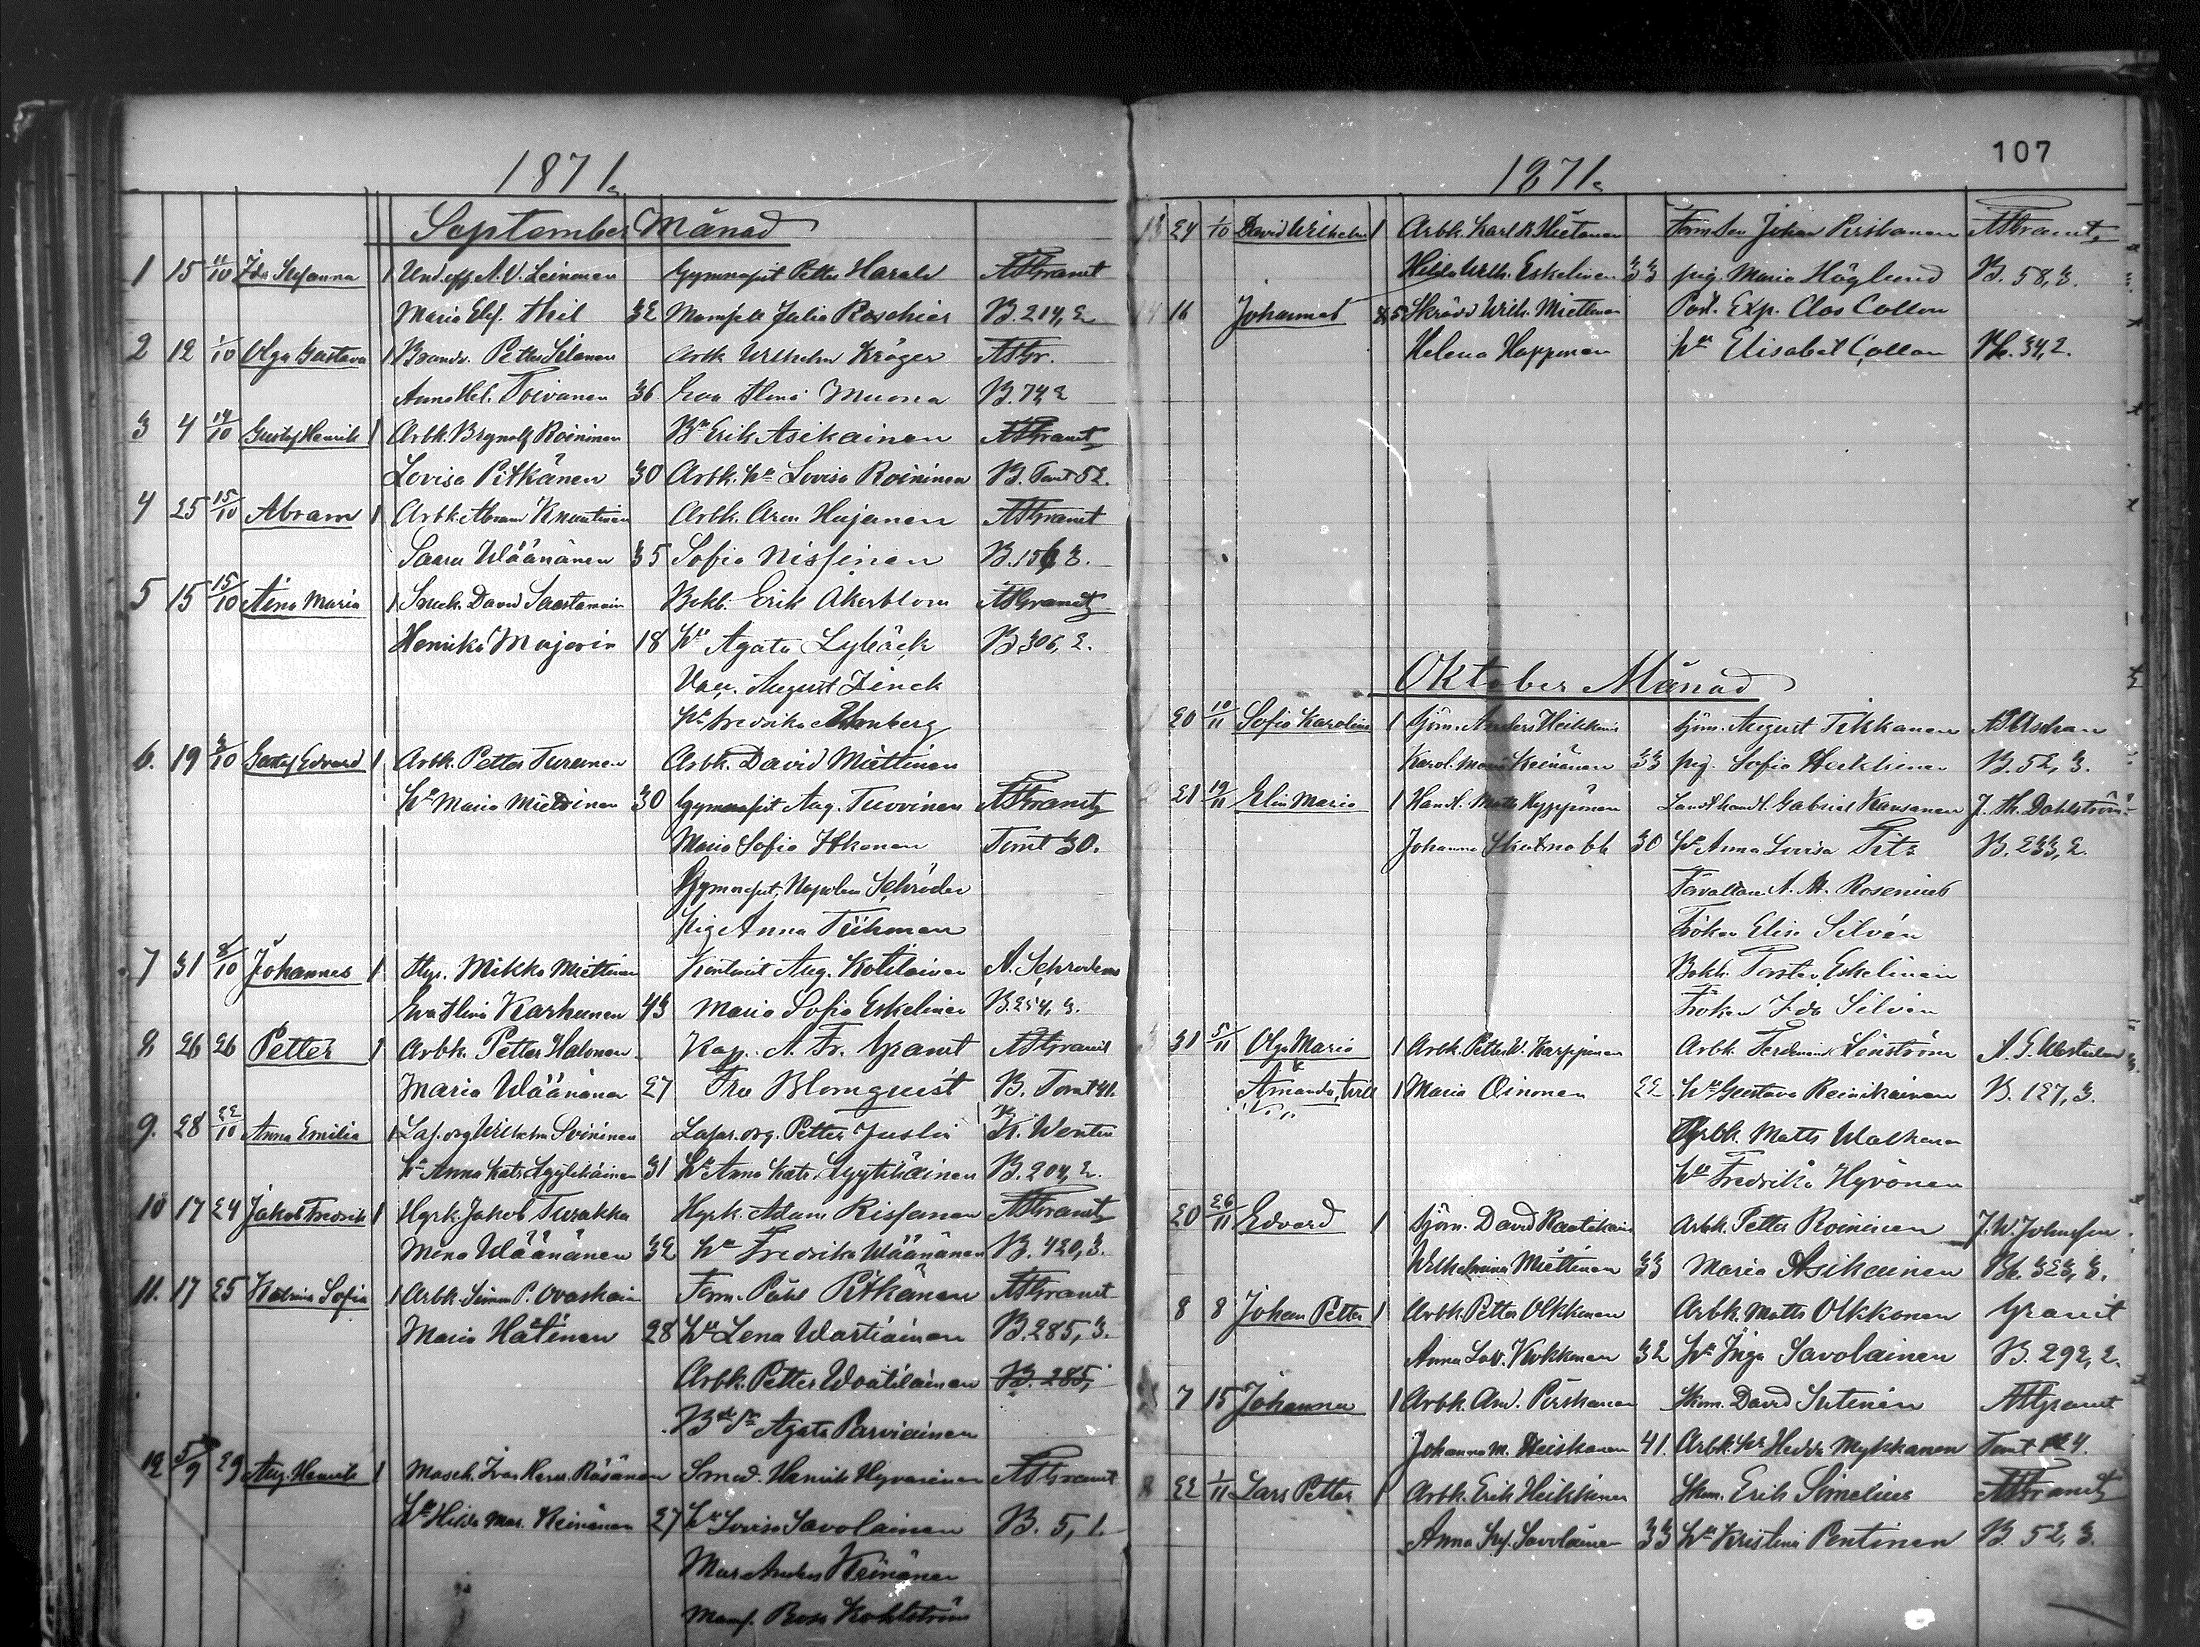 1871.
September Månad
1 15 11/10 Ida Stefanna 1 Und.off. A. V. Leinonen Gymnasist Petter Harald A Granit
Maria Elis. Thil 32 Mamsell Julia Roschier B. 214, 2
2 12 1/10 Olga Gustava 1 Petter Silanen Arbk Wilhelm Kröger A Gr.
Anna Hel. Toivanen 36 Eva Stina Muona B. 74, 2
3 4 14/10 Gustaf Henrik 1 Arbk. Brynolf Roininen Bn Erik Asikainen A Granit
Lovisa Pitkänen 30 Arbk. hu Lovisa Roininen B. Tomt 52.
4 25 15/10 Abram 1 Arbk. Abram Knuutinen Arbk. Aron Hujanen A Granit
Saara Wäänänen 35 Sofia Nissinen B. 156, 3.
5 15 15/10 Aina Maria 1 Snick. David Saastamoin Bokb. Erik Åkerblom A Granit
Henrika Majorin 18 Hu Agata Lybäck B 306, 2.
August Zinck
Hu Fredrika
6. 19 3/10 Gustaf Edvard 1 Arbk. Petter Turunen Arbk. David Miettinen
Hu Maria Miettinen 30 Gymnasist Aug. Tuovinen A Granit
Maria Sofia Itkonen Tomt 30.
Gymnasist. Napoleon Schröder
Pig Anna Tiihonen
7 31 8/10 Johannes 1 Hyr. Mikko Miettinen Aug. Kotilainen A. Schroderus
Eva Stina Karhunen 43 Maria Sofia Eskelinen B. 254, 3.
8 26 26 Petter 1 Arbk. Petter Halonen Kap. A. Fr. Granit A Granit
Maria Wäänänen 27 Fru Blomquist B. Tomt 41.
9. 28 22/10 Anna Emilia 1 Laf.org Wilhelm Soininen Lafar.org. Petter Juslin K. Wentin
Hu Anna Kats Lyytikäinen 31 Hu Anna Kats Lyytikäinen B. 204, 2.
10 17 24 Jakob Fredrik 1 Hyrk. Jakob Turakka Hyrk. Adam Rissanen A Granit
Mena Wäänänen 32 Hu Fredrika Wäänänen B. 420, 3.
11. 17 25 Sofia 1 Arbk. Simon P. Ovaskain Form. Påhl Pitkänen A Granit
Maria Hätinen 28 Hu Lena Wartiainen B. 285, 3.
Arbk. Petter Woutilainen B. 285,
Agata Parviainen
12 5/9 29 Aug. Henrik 1 Masch. Ivar Herm. Räsänen Smed. Henrik Hyvärinen A Granit
Hu Hilda Mar. Keinänen 27 Hu Lovisa Savolainen B. 5, 1.
Mur Anders Keinänen
Mams. Rosa Kohlström
107
1871.
13 24 1/10 David Wilhelm 1 Arbk. Karl K Hietanen Johan Pirskanen A Granit
Hilda Wilh. Eskelinen 33 pig. Maria Höglund B. 58, 2.
14 16 Johannes 1 Skrädd Wilh. Miettinen Post. Exp. Clas Collan
Helena Happonen Hu Elisabet Collan B. 34, 2.
Oktober Månad
1 20 10/11 Sofia Karolina 1 Sjöm. Anders Heikkinen Sjöm. August Tikkanen
Karol. Maria Keinänen 33 pig. Sofia Heikkinen B. 52, 3.
2 21 19/11 Elin Maria 1 Handl. Matts Hyppönen Landthandl. Gabriel Kausanen J. Th. Dahlström
Johanna Skutnabb 30 Hu Anna Lovisa Titz B. 233, 2.
Förvaltare A. M. Rosenius
Fröken Elise Silvén
Bokh. Torsten Eskelinen
Fröken Ida Silvén
3 31 5/11 Olga Maria 1 Arbk. Petter W. Karppinen Arbk. Ferdinand Lönström A. G. Westerlun
& Amanda, tvill 1 Maria Oinonen 22 Hu Gustava Reinikainen B. 127, 3.
Arbk. Matts Walkonen
Hu Fredrika Hyvönen
20 26/11 Edvard 1 Sjöm. David Rautiainen Arbk. Petter Roininen J. W. Johnsson
Wilhelmina Miettinen 33 Maria Asikainen B. 323, 3.
8 8 Johan Petter 1 Arbk. Petter Olkkonen Arbk. Matts Olkkonen Granit
Anna Lov. Kukkonen 32 Hu Inga Savolainen B. 292, 2.
7 15 Johanna 1 Arbk. And. Pirskanen Skom. David Sutinen A Granit
Johanna M. Heiskanen 41. Arbk. hu Hedda Mykkänen Tomt 124.
22 1/11 Lars Petter 1 Arbk. Erik Heikkinen Skom. Erik Simelius A Granit
Anna Sof. Savolainen 33 Hu Kristina Pentinen B. 52, 3.